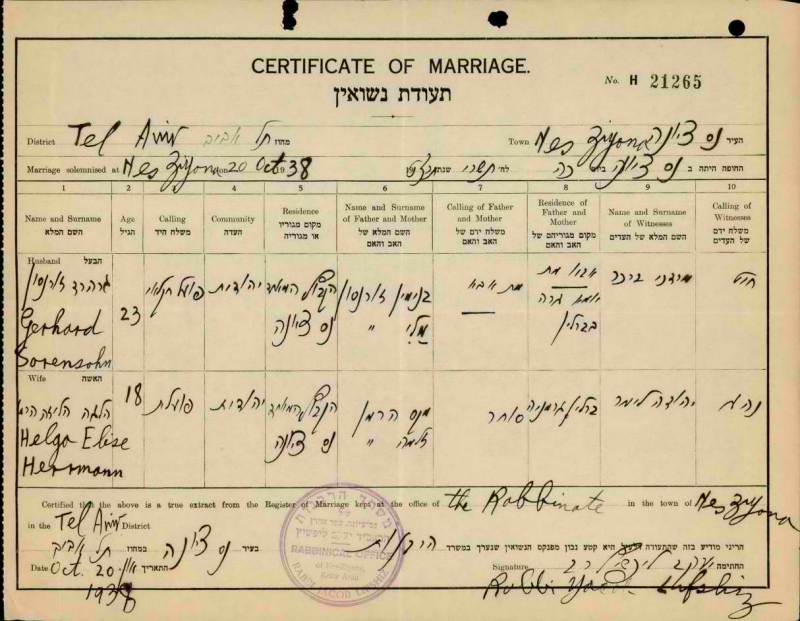 CERTIFICATE OF MARRIAGE.
תעודת נשואין
No. H 21265
District Tel Aviv תל אביב מחוז Town Nes Ziyona נס ציונה העיר
Marriage solemnised at Nes Ziyona on 20 Oct. 38 לח' תשרי שנת החופה היתה ב נס ציונה ביום כה
1 2 3 4 5 6 7 8 9 10
Name and Surname Age Calling Community Residence Name and Surname of Father and Mother Calling of Father and Mother Residence of Father and Mother Name and Surname of Witnesses Calling of Witnesses
השם המלא הגיל משלח היד העדה מקום מגוריו או מגוריה השם המלא של האב והאם משלח ידם של האב והאם מקום מגוריהם של האב והאם השם המלא של העדים משלח ידם של העדים
Husband הבעל
גרהרד זורנסון 23 פועל חקלאי יהודית הקבוץ המאוחד נס ציונה בנימין זורנסון מת אבא אבא מת אמא גרה בברלין מרדכי
Gerhard
Sorensohn
Wife האשה
הלגה אליזה 18 פועלת יהודית הקבוץ המאוחד נס ציונה הרמן סוחר ברלין גרמניה יהודה
Helga Elise
Herrmann
Certified that the above is a true extract from the Register of Marriage kept at the office of the Rabbinate in the town of Nes Ziyona
in the Tel Aviv District
הריני מודיע בזה שהתעודה היא קטע נכון מפנקס הנשואין שנערך במשרד הרבנות בעיר נס ציונה במחוז תל אביב
Date Oct. 20 התאריך
1938
Signature החתימה יעקב ליפשיץ רב
Rabbi Yacob Lifshiz
משרד הרבנות
RABBINICAL OFFICE
of Nes-Ziyona,
RABBI JACOB LIFSHIZ